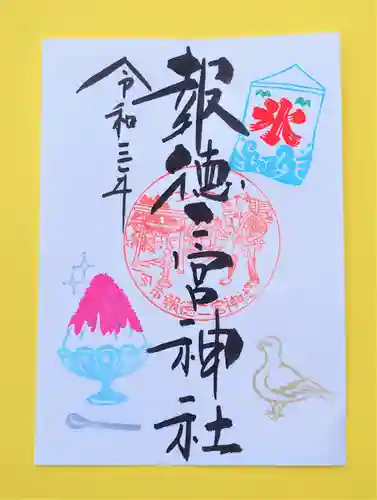 報徳二宮神社
令和三年
氷